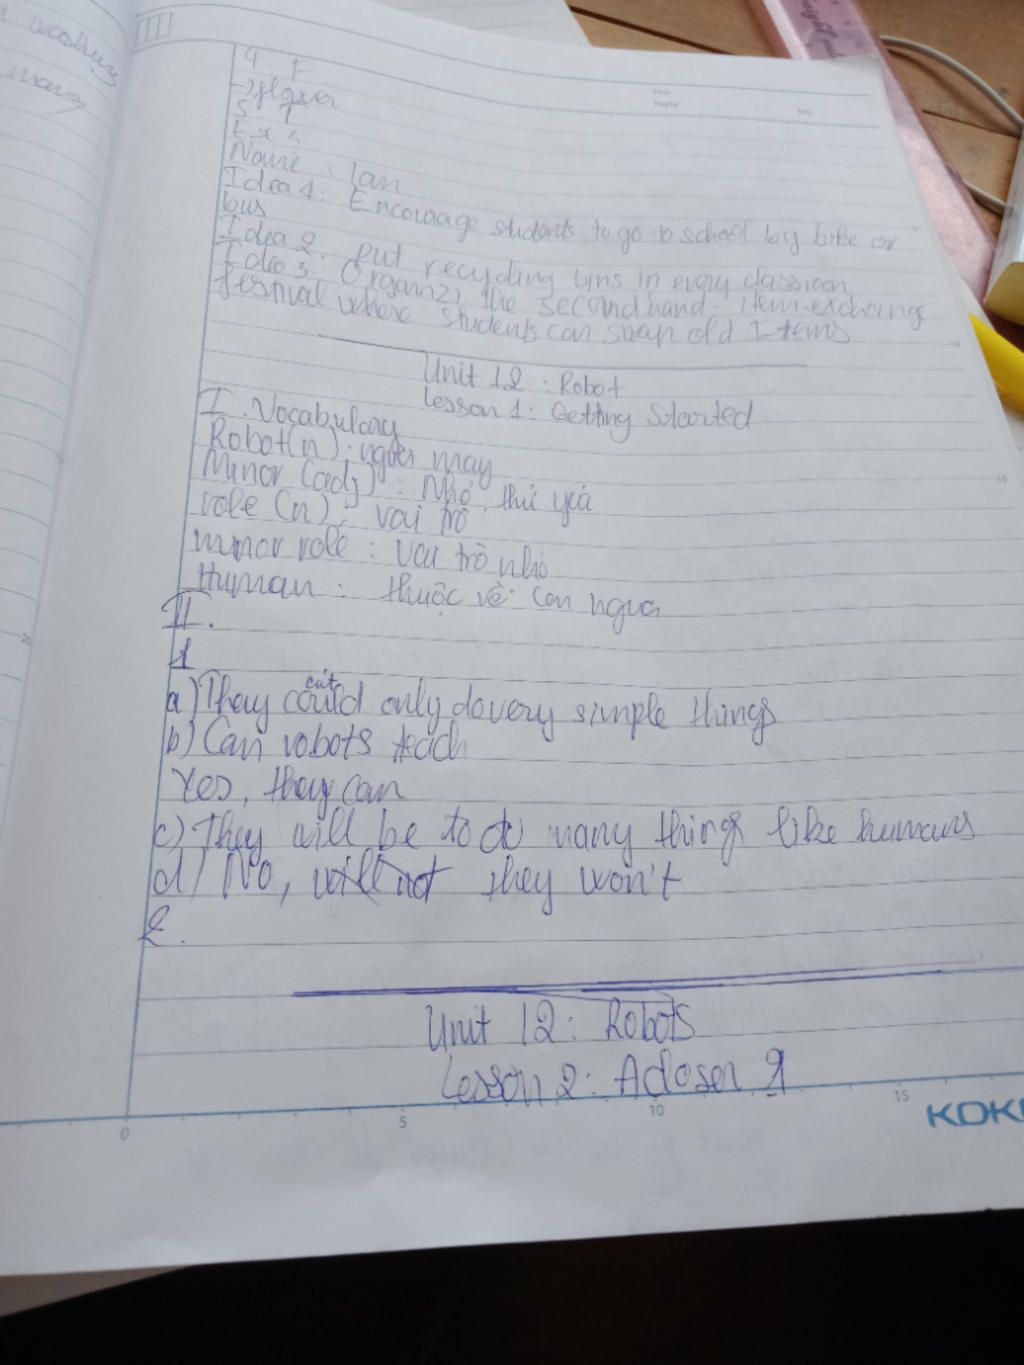 washing
many
4. F
5. T
Ex 3
Name : lan
Idea 1: Encourage students to go to school by bike or
bus
Idea 2. put recycling bins in every classroom
Ideo 3. Organiz, the secondhand. Item exchang
festival where students can swap old Items
Unit 12 : Robot
Lesson 1: Getting Started
I. Vocabulary
Robot(n): người máy
Minor (adj) : Nhỏ, thứ yếu
role (n) : vai trò
minor role : vai trò nhỏ
Human : thuộc về con người
II.
1
a) They could only do very simple things
b) Can robots teach
Yes, they can
c) They will be to do many things like humans
d) No, will not they won't
2.
Unit 12: Robots
Lesson 2: A closer 1
0 5 10 15